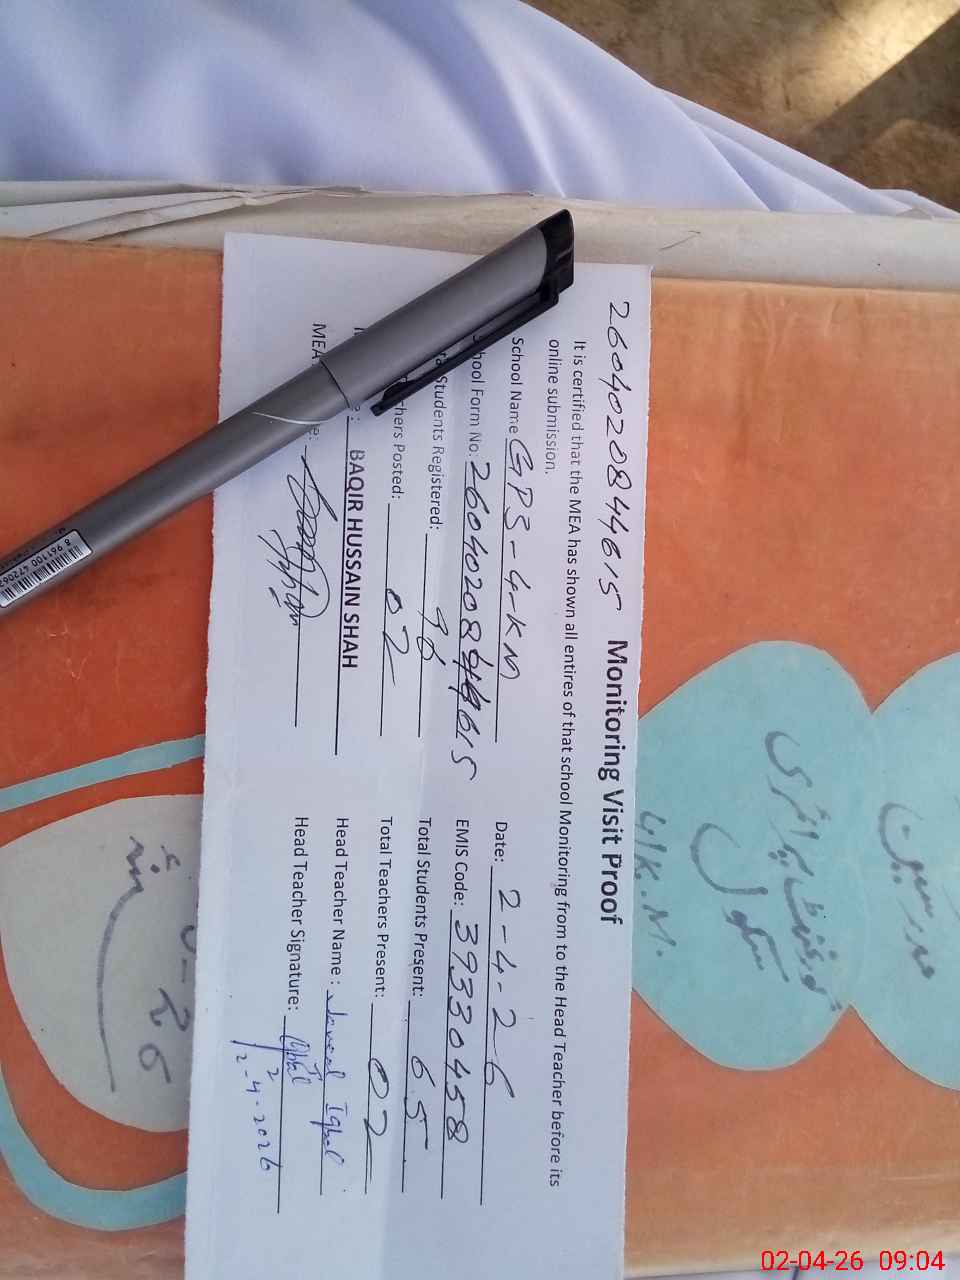 260402084615 Monitoring Visit Proof
It is certified that the MEA has shown all entires of that school Monitoring from to the Head Teacher before its
online submission.
School Name GPS-4-KM Date: 2-4-26
hool Form No: 260402084615 EMIS Code: 39330458
Students Registered: 96 Total Students Present: 65
hers Posted: 02 Total Teachers Present: 02
BAQIR HUSSAIN SHAH Head Teacher Name: Javed Iqbal
MEA Head Teacher Signature: Iqbal
2-4-2026
مدرسین
گورنمنٹ پرائمری
سکول
4/K.M.
8 961100
02-04-26 09:04